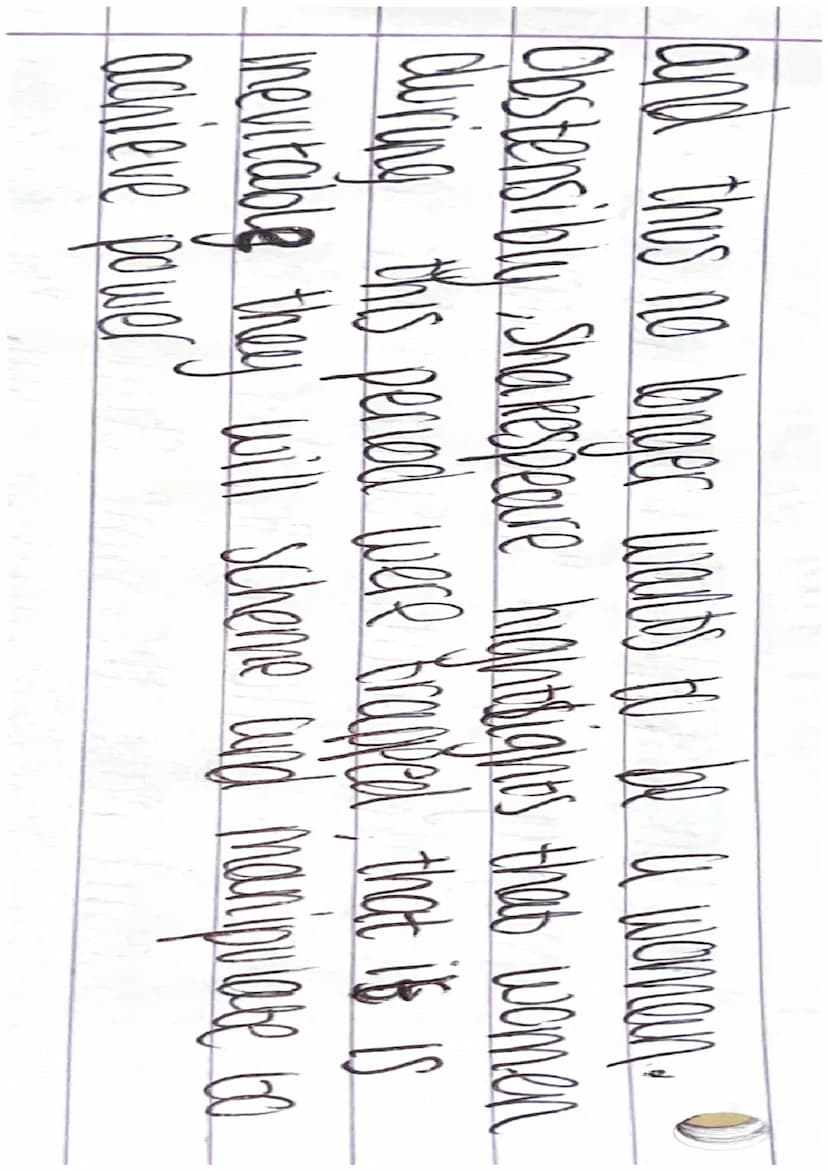 and thus no longer wants to be a women.
Obstensibly, Shakespeare hightsights that women
during this period were trapped, that it is
inevitable they will scheme and manipulate to
achieve power